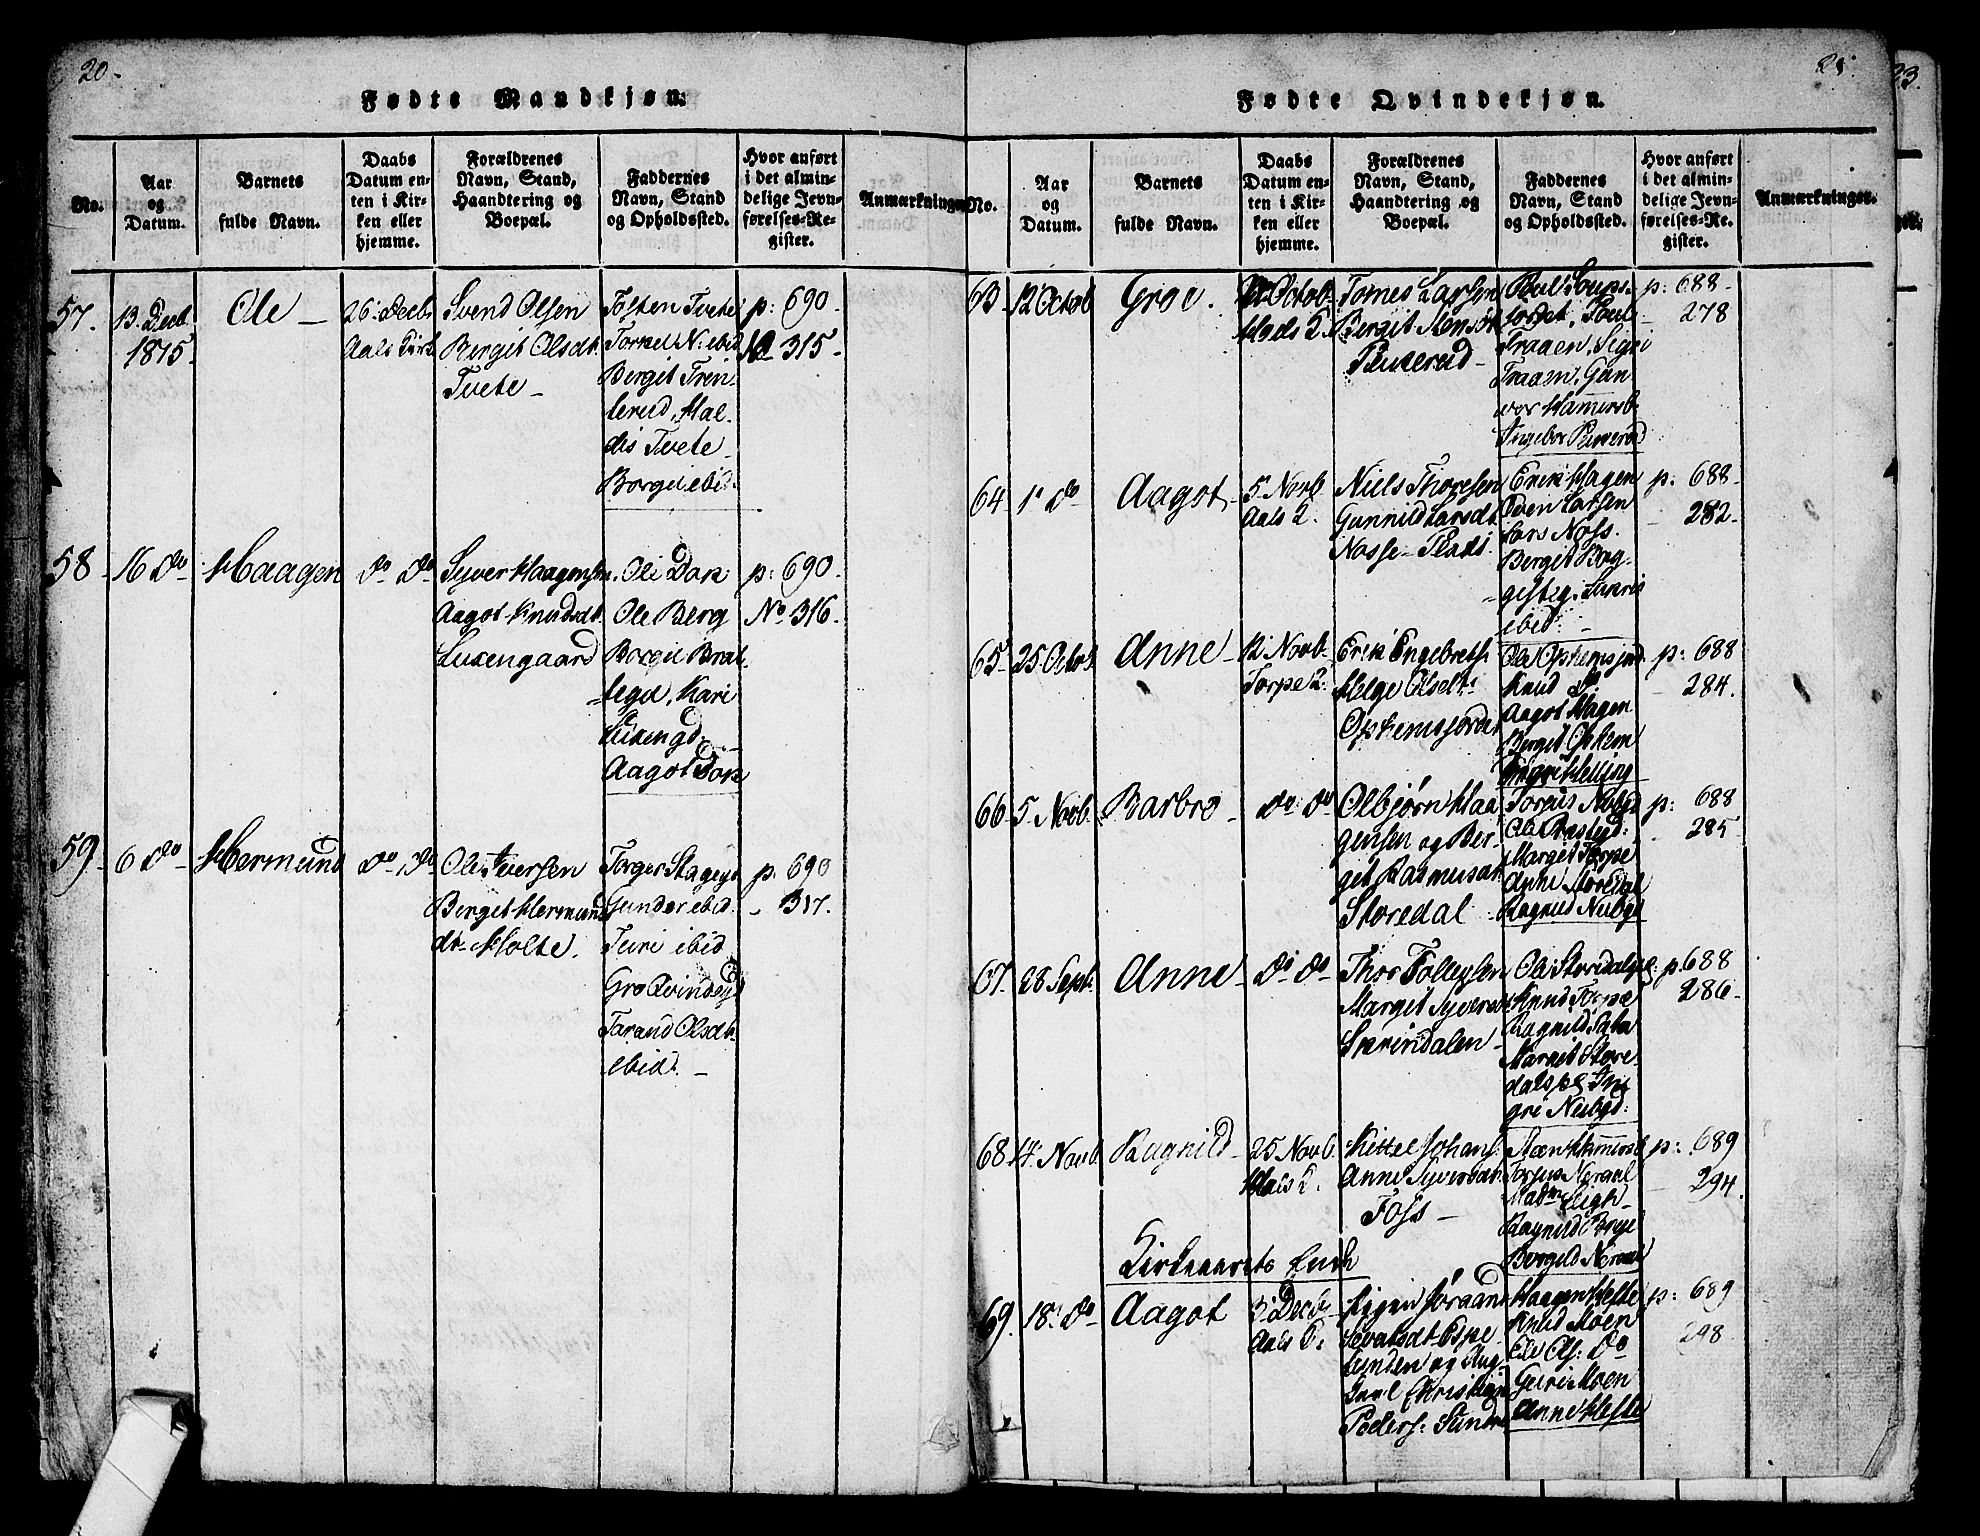 20.
Fødte Mandkjøn.
No.
Aar
og
Datum.
Barnets
fulde Navn.
Daabs
Datum en-
ten i Kir-
ken eller
hjemme.
Forældrenes
Navn, Stand,
Haandtering og
Boepæl.
Faddernes
Navn, Stand
og Opholdssted.
Hvor anført
i det almin-
delige Jevn-
førelses-Re-
gister.
Anmærkninger
57.
13. Decb.
1815
Ole
26. Decb.
Aals Kirk
Svend Olsen
Bergit Olsdt.
Tvete
Tosten Tvete
Torkel N: ibid
Bergit Tren-
terud, Mal-
dis Tvete
Borgil ibid.
p: 690.
No 315.
58
16 do
Haagen
do do
Syver Haagensen
Aagot Knudsdt.
Luxengaard
Ole Dok
Ole Berg
Borgil Brat-
tegd, Kari
Luxengd.
Aagot Dok
p: 690.
No 316.
59.
6 do
Hermund
do do
Ole Iversen
Bergit Hermund
dt. Holte.
Torger Stagegd
Gunder ibid.
Turi ibid
Gro Qvindegd
Tarand Olsdt.
ibid.
p. 690
317.
Fødte Qvindekjøn.
No.
Aar
og
Datum.
Barnets
fulde Navn.
Daabs
Datum en-
ten i Kir-
ken eller
hjemme.
Forældrenes
Navn, Stand,
Haandtering og
Boepæl.
Faddernes
Navn, Stand
og Opholdssted.
Hvor anført
i det almin-
delige Jevn-
førelses-Re-
gister.
Anmærkninger.
63
12 Octob
Groe.
Octob.
Aals K.
Tomes Larsen
Bergit
Pukerud
Poul
Traaen, Segri
Traaen, Gun
vor Hamersb.
Ingebor Pukerud
p: 688
278
64
1. do
Aagot
5 Novb
Aals K.
Niels Thoresen
Gunnild Larsdt.
Nosse-Plads.
Erik Hagen
Sven Larsen
Lars Noss.
Bergit Bag-
gesteg,
ibid.
p. 688
282.
65
25 Octob.
Anne
12 Novb.
Torpe K.
Erik Engebrets.
Helge Olsdt.
Opheimsjordet
Ole Ophemsjord
Knud do
Aagot Hagen
Bergit Ophem
p: 688
284.
66
5. Novb.
Barbro
do do
Olbjørn Haa
gensen og Ber-
get Rasmusdt.
Storedal
Nubgd
Margit Torpe
Anne Storedal
Ragnild Nubgd
p: 688
285
67.
28 Sept.
Anne
do do
Thor Tollefsen
Marget Syversdt
Skrindalen
Ole Storedalspl.
Knud Torpe
Ragnild
Margit Store-
dalspl. In
gri Nubgd.
p. 688
286.
68
14. Novb.
Ragnild
25 Novb.
Aals K.
Kittel Johans.
Anne Syversdt.
Foss
Neraal
Madm
Ragnild
Bergild Neraal
p: 689
294.
Kirkeaarets Ende
69.
18. do
Aagot
3. Decb
Aals K.
Espe-
lunden og Aug
Christian
Peders: Sundre
Haagen Hefte
Knud Moen
Ole Ols: do
Guri Moen
Anne Hefte
p: 689
298.
23.